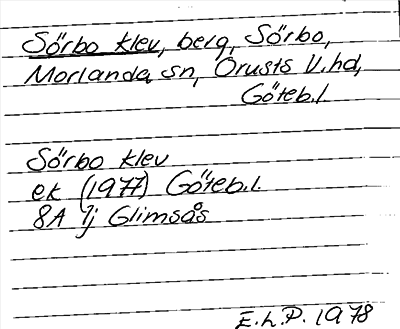 Sörbo klev, berg, Sörbo,
Morlanda sn, Orusts V.hd,
Göteb.l.
Sörbo klev
ek (1977) Göteb.l.
8A 7j Glimsås
E.h.P. 1978